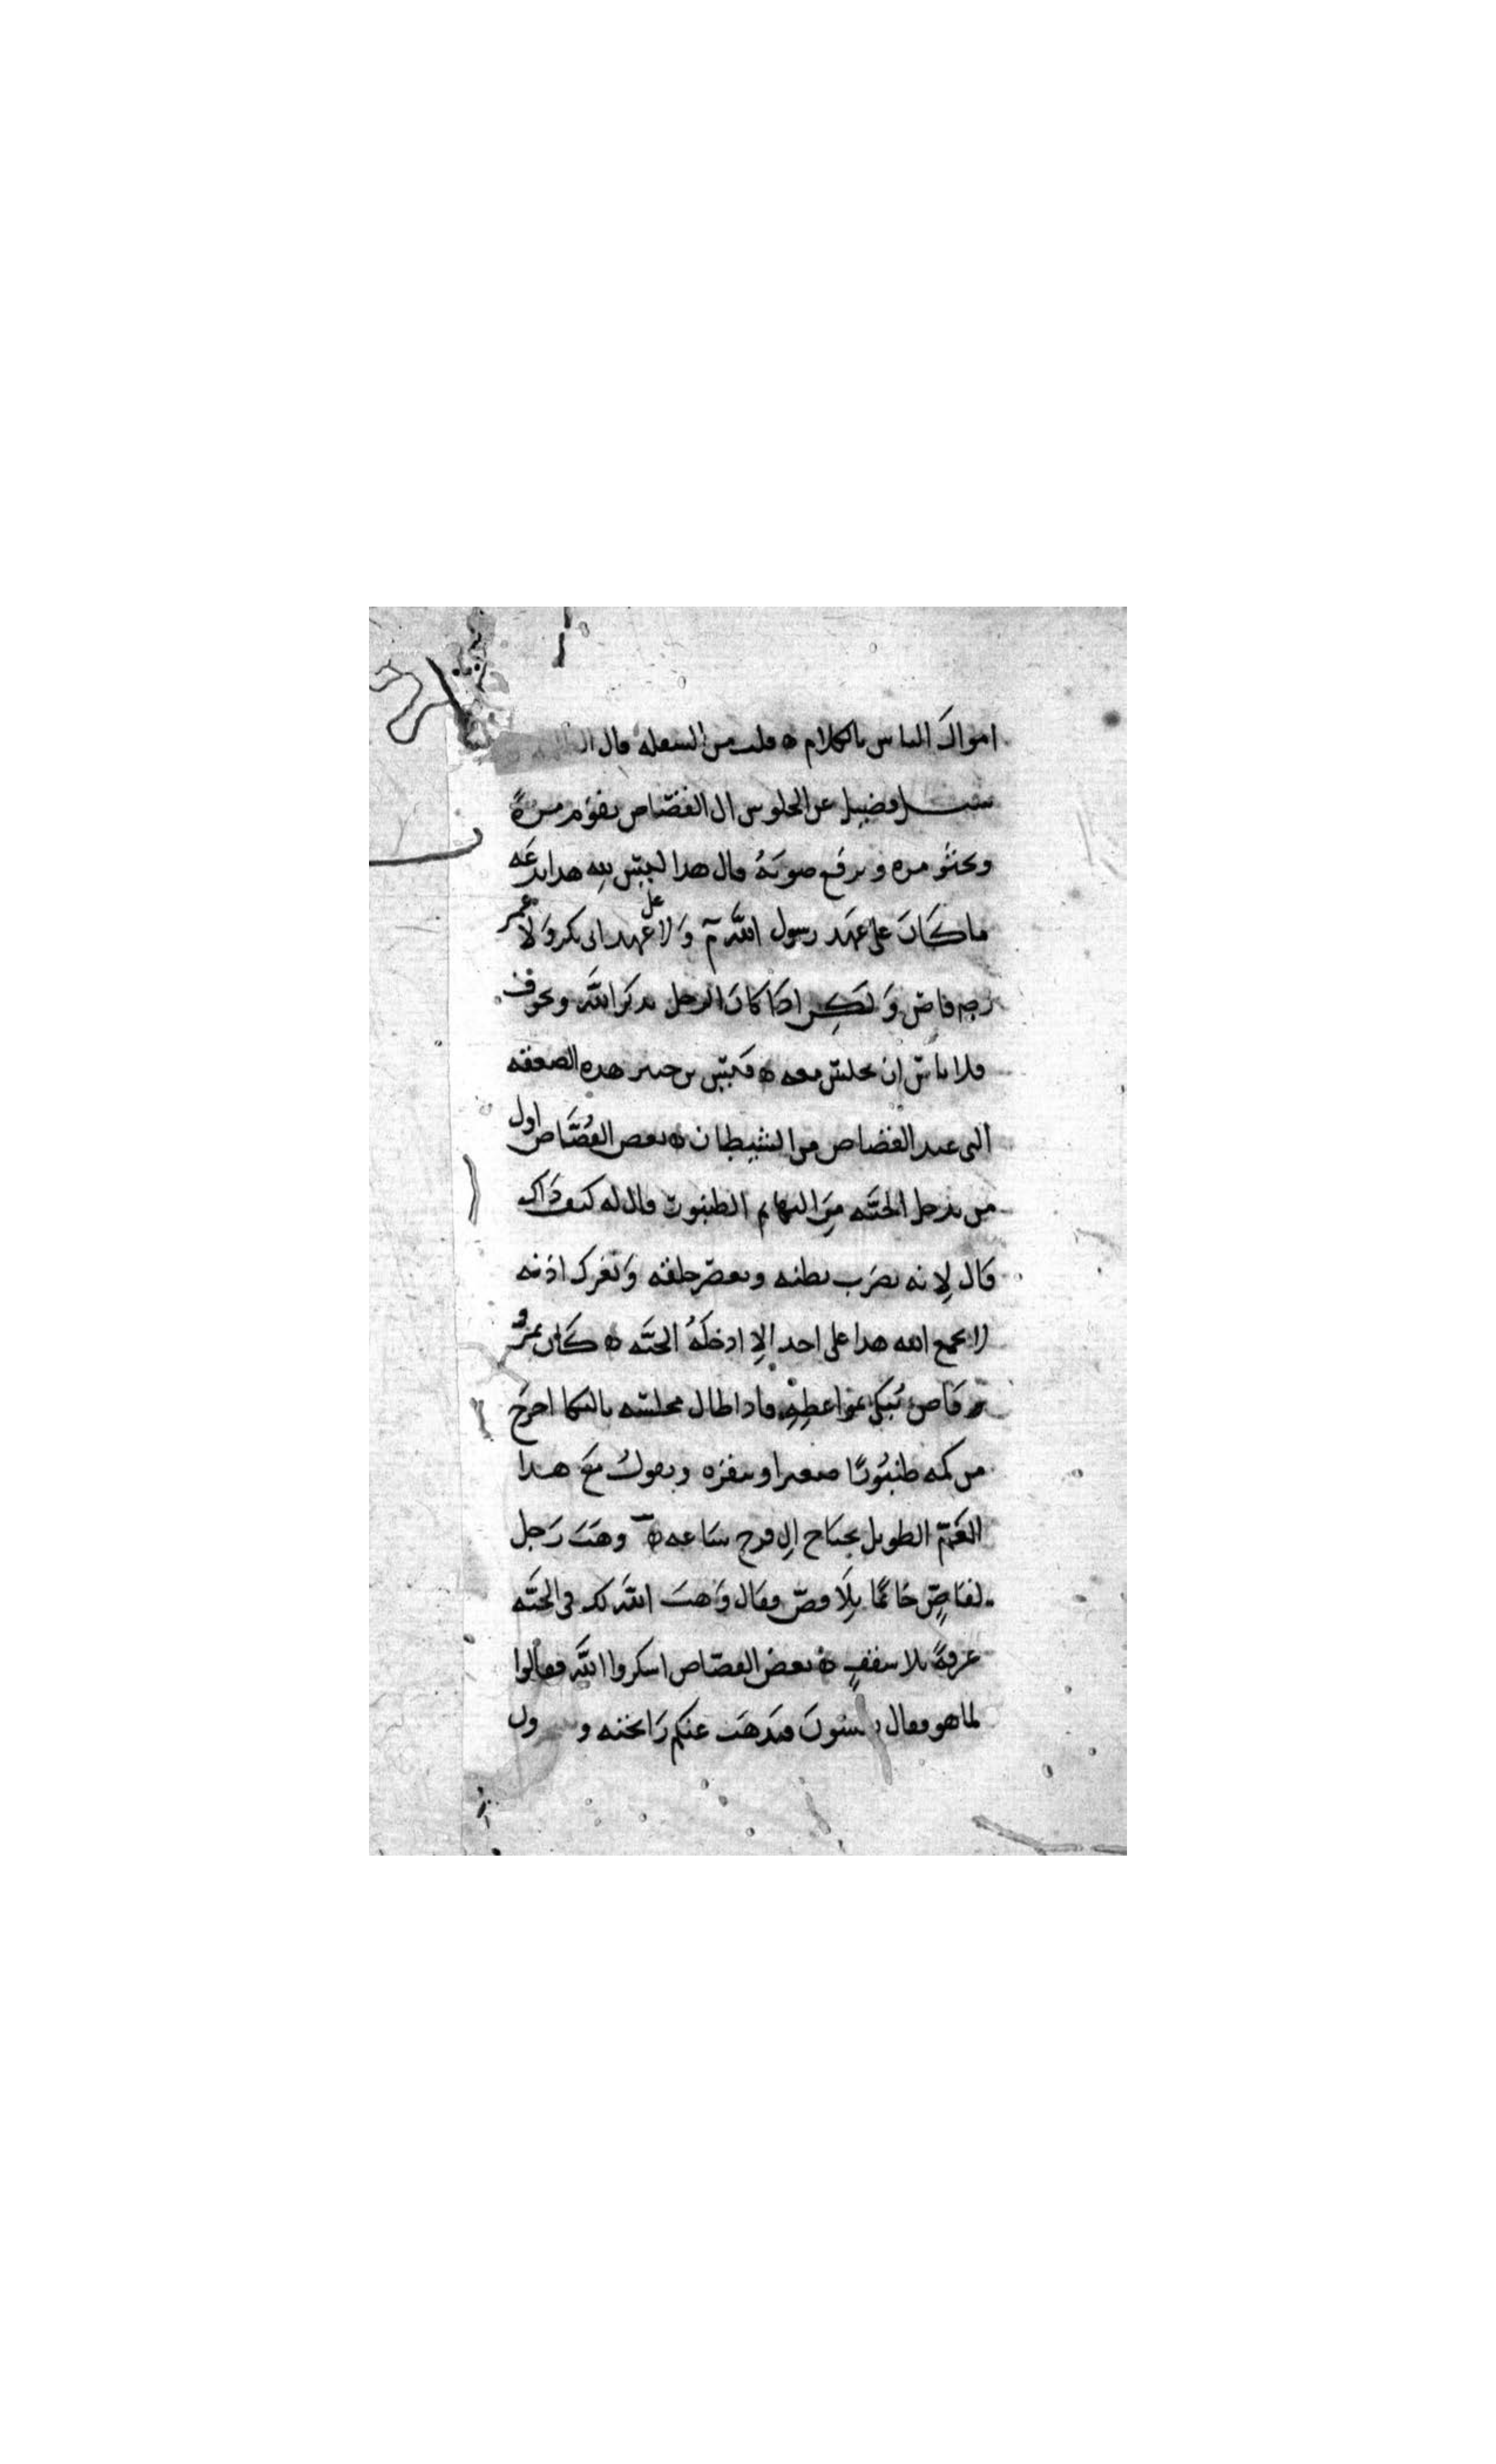 اموال الناس بالكلام ه قلت من السفله قال
سئل فضيل عن الجلوس الى القصاص يقوم مرةً
ويجثو مره ويرفع صوتهُ قال هذا ليس لله هذا بدعه
ما كانَ على عهد رسول اللّه م وَلا على عهد ابى بكر وَلا عمر
رجه قاص وَلكن اذا كان الرجل يذكر اللّه ويخوف
فلا باس ان يجلس معه ه قيس بن جبير هذه الصعقه
التى عند القصاص من الشيطان ه بعض القُصَّاص اول
من يدخل الجنّه من البهايم الطنبور قال له كيف ذَاك
قال لانه يضرَب بطنه ويعصر حلقه وَتعرك اذنه
لا يجمع الله هذا على احد الا ادخلَهُ الجنّه ه كان بمرو
قاص يُبكى بمواعظِهِ فاذا طال مجلسه بالبكا اخرج
من كمه طنبُورًا صغيرا وينقره ويقولُ مع هذا
الغَمّ الطويل يحتاج الى فرح ساعه ه وهَبَ رَجل
لقاصٍّ خاتمًا بِلَا فصّ فقال وَهبَ اللّه لك فى الجنّه
غرفةً بلا سقفٍ ه بعض القصّاص اشكروا اللّه فقالوا
لما هو فقال تفسونَ فتذهَب عنكم رَايحته